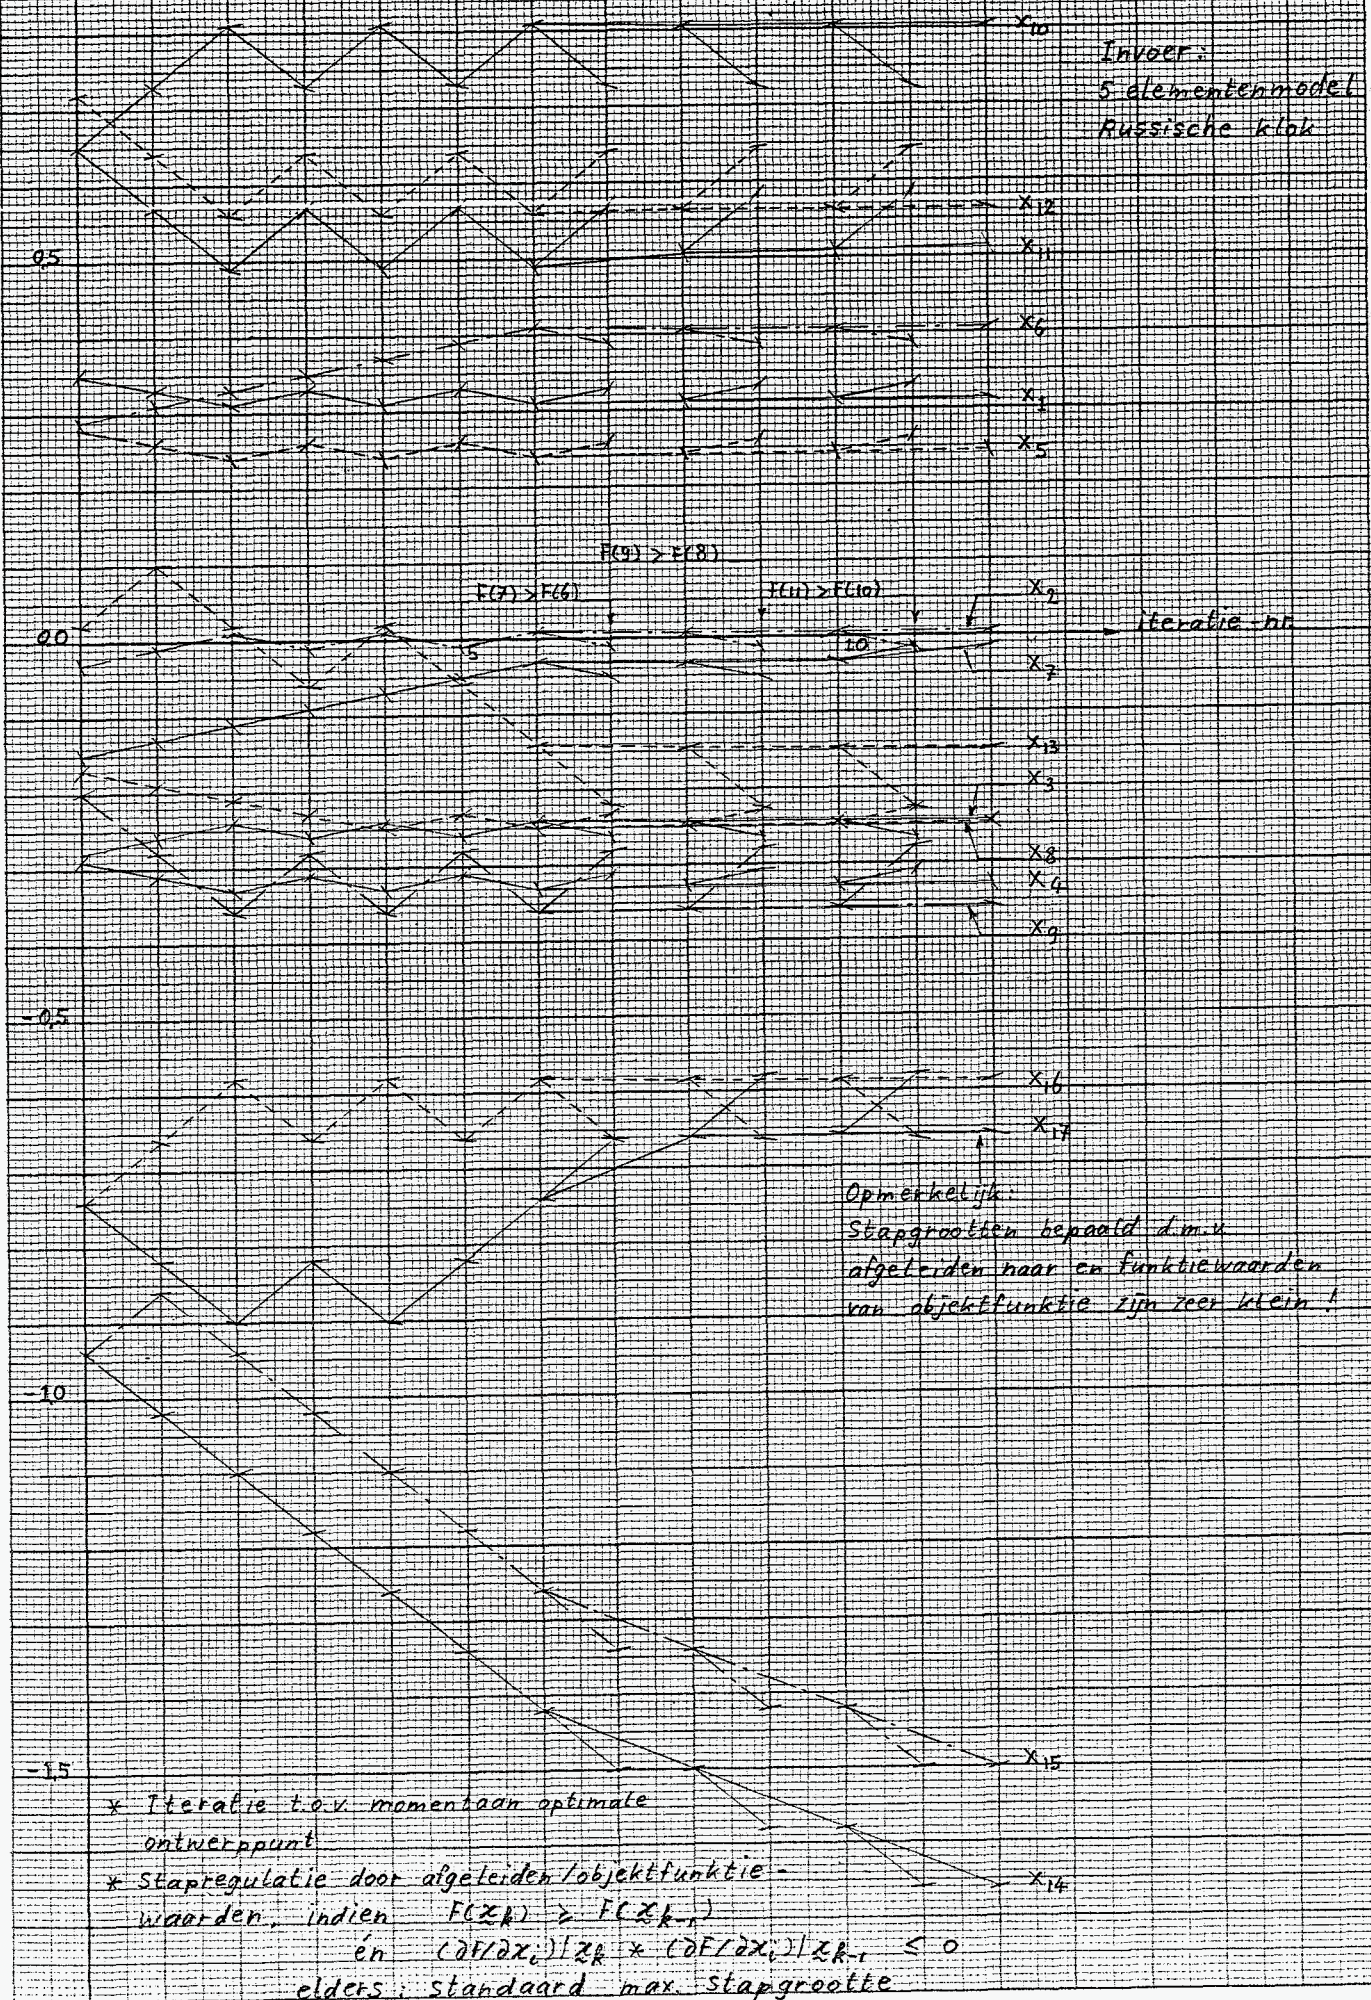 x10
Invoer:
5 elementenmodel
Russische klok
x12
0,5
x11
x6
x1
x5
F(9) > F(8)
F(7) > F(6)
F(11) > F(10)
x2
0,0
5
10
iteratie-nr.
x7
x13
x3
x8
x4
x9
-0,5
x16
x17
Opmerkelijk:
Stapgrootten bepaald d.m.v.
afgeleiden naar en funktiewaarden
van objektfunktie zijn zeer klein!
-1,0
x15
-1,5
* Iteratie t.o.v. momentaan optimale
ontwerppunt
* Stapregulatie door afgeleiden/objektfunktie-
x14
waarden, indien F(xk) ≥ F(xk-1)
én (∂F/∂xi)|xk * (∂F/∂xi)|xk-1 ≤ 0
elders: standaard max. stapgrootte